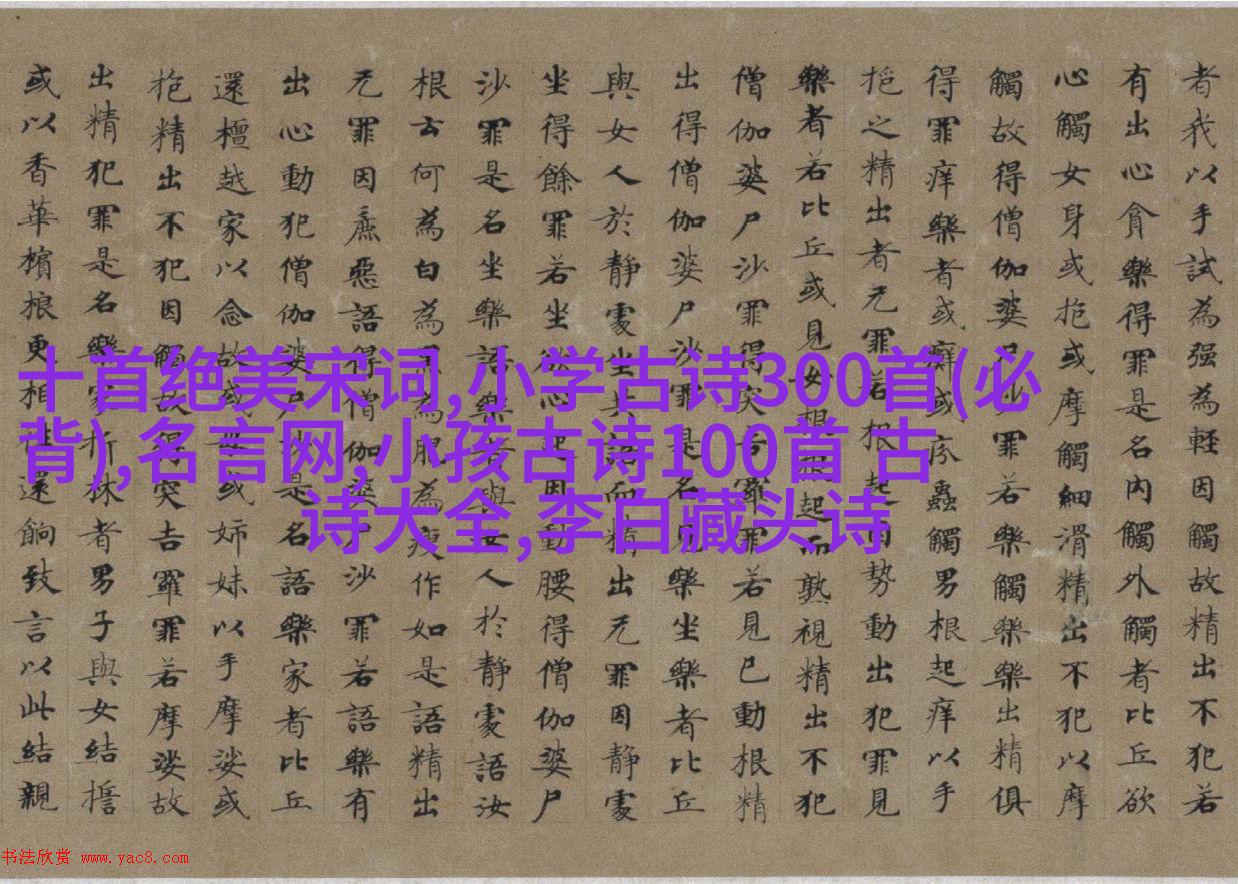 十首绝美宋词,小学古诗300首(必
背),名言网,小孩古诗100首 古
诗大全,李白藏头诗
者我以手試為强為輕因觸故精出不犯若
有出心貪樂得罪是名内觸外觸者比丘欲
心觸女身或抱或摩觸細滑精出不犯以摩
觸故得僧伽婆尸沙罪若樂觸樂樂出精俱
得罪痒樂者或癬或疥蟲觸男根起痒以手
抱之精出者无罪若根起因勢動出犯罪見
樂者若比丘或見女根根起而熟視精出不犯
僧伽婆尸沙罪得突吉羅罪若見已動根精
出得僧伽婆尸沙罪是名見樂坐樂者比丘
與女人於靜處坐共語而精出无罪因靜處
坐得餘罪若坐欲心起因動腰得僧伽婆尸
沙罪是名坐樂語樂者與女人於靜處語汝
根云何為白為黑為肥為瘦作如是語精出
无罪因麁惡語得僧伽婆尸沙罪若語樂有
出心動犯僧伽婆尸沙是名語樂家者比丘
還檀越家以念故或母或姉妹以手摩娑或
抱精出不犯因觸故得突吉羅罪若摩娑故
出精犯罪是名樂家折林者男子與女結擔
或以香華檳榔更相往還餉致言以此結親
书法欣赏 www.yac8.com